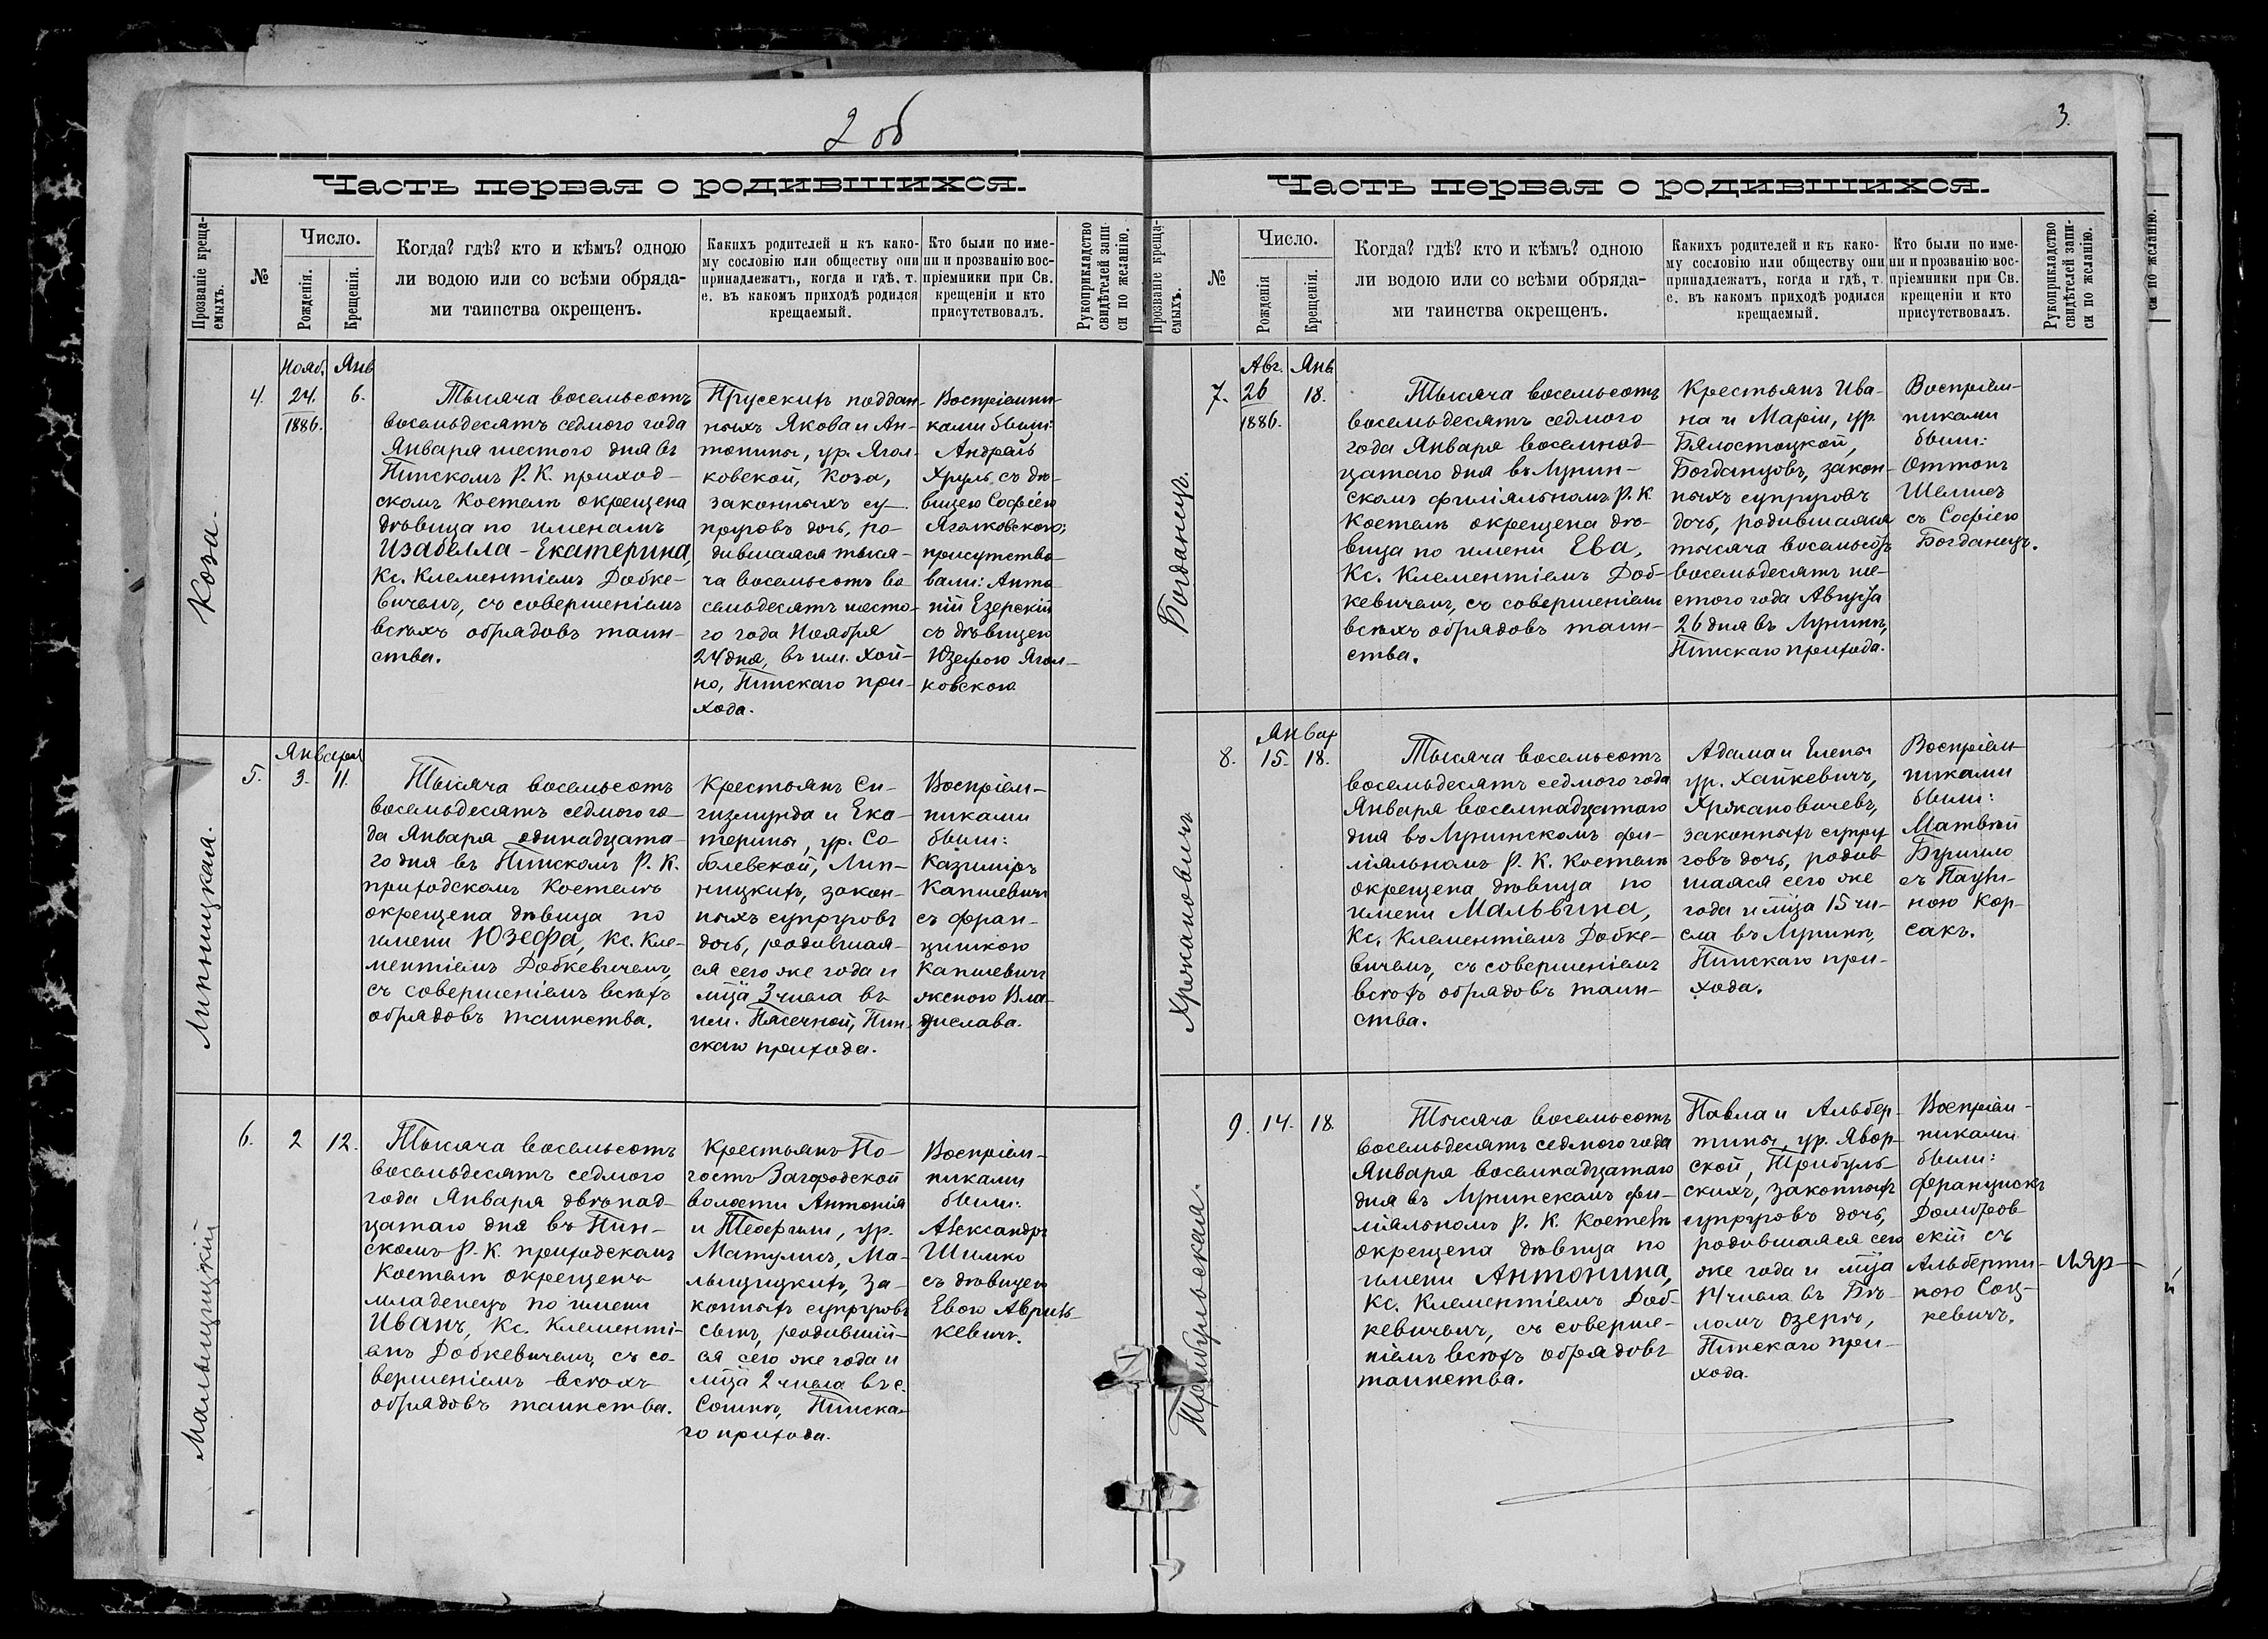 2 об
Часть первая о родившихся.
Прозваніе креща-
емыхъ.
№
Число.
Рожденія.
Крещенія.
Когда? гдѣ? кто и кѣмъ? одною
ли водою или со всѣми обряда-
ми таинства окрещенъ.
Какихъ родителей и къ како-
му сословію или обществу они
принадлежатъ, когда и гдѣ, т.
е. въ какомъ приходѣ родился
крещаемый.
Кто были по име-
ни и прозванію вос-
пріемники при Св.
крещеніи и кто
присутствовалъ.
Рукоприкладство
свидѣтелей запи-
си по желанію.
Коза.
4.
Нояб.
24.
1886.
Янв
6.
Тысяча восемьсотъ
восемьдесятъ седмого года
Января шестого дня въ
Пинскомъ Р. К. приход-
скомъ Костелѣ окрещена
дѣвица по именамъ
Изабелла-Екатерина,
Кс. Клементіемъ Добке-
вичемъ, съ совершеніемъ
всѣхъ обрядовъ таин-
ства.
Прусскихъ поддан-
ныхъ Якова и Ан-
тонины, ур. Ягол-
ковской, Коза,
законныхъ су-
пруговъ дочь, ро-
дившаяся тыся-
ча восемьсотъ во
семьдесятъ шесто-
го года Ноября
24 дня, въ им. Хой-
но, Пинскаго при-
хода.
Воспріемни-
ками были:
Андрей
Хруль съ дѣ-
вицею Софіею
Яголковскою;
присутство-
вали: Анто
ній Езерскій
съ дѣвицею
Юзефою Ягол-
ковскою
Липницкая.
5.
Января
3.
11.
Тысяча восемьсотъ
восемьдесятъ седмого го-
да Января одинадцата-
го дня въ Пинскомъ Р. К.
приходскомъ Костелѣ
окрещена дѣвица по
имени Юзефа, Кс. Кле-
ментіемъ Добкевичемъ,
съ совершеніемъ всѣхъ
обрядовъ таинства.
Крестьянъ Си-
гизмунда и Ека-
терины, ур. Со-
болевской, Лип-
ницкихъ, закон-
ныхъ супруговъ
дочь, родившая-
ся сего же года и
мца 3 числа въ
им. Пасечной, Пин-
скаго прихода.
Воспріем-
никами
были:
Казиміръ
Капшевичъ
съ Фран-
цишкою
Капшевичъ
женою Вла-
дислава.
Мальщицкій
6.
2
12.
Тысяча восемьсотъ
восемьдесятъ седмого
года Января двѣнад-
цатаго дня въ Пин-
скомъ Р. К. приходскомъ
Костелѣ окрещенъ
младенецъ по имени
Иванъ, Кс. Клементі-
емъ Добкевичемъ, съ со-
вершеніемъ всѣхъ
обрядовъ таинства.
Крестьянъ По-
гостъ Загородской
волости Антонія
и Теофили, ур.
Матулисъ, Ма-
льщицкихъ, за-
конныхъ супруговъ
сынъ, родивший-
ся сего же года и
мца 2 числа въ с.
Сошнѣ, Пинска-
го прихода.
Воспріем-
никами
были:
Александръ
Шимко
съ дѣвицею
Евою Авринь-
кевичъ.
3.
Часть первая о родившихся.
Прозваніе креща-
емыхъ.
№
Число.
Рожденія
Крещенія.
Когда? гдѣ? кто и кѣмъ? одною
ли водою или со всѣми обряда-
ми таинства окрещенъ.
Какихъ родителей и къ како-
му сословію или обществу они
принадлежатъ, когда и гдѣ, т.
е. въ какомъ приходѣ родился
крещаемый.
Кто были по име-
ни и прозванію вос-
пріемники при Св.
крещеніи и кто
присутствовалъ.
Рукоприкладство
свидѣтелей запи-
си по желанію.
си по желанію.
Богданецъ.
7.
Авг.
26
1886.
Янв
18.
Тысяча восемьсотъ
восемьдесятъ седмого
года Января восемнад-
цатаго дня въ Лунин-
скомъ филіяльномъ Р. К
Костелѣ окрещена дѣ-
вица по имени Ева,
Кс. Клементіемъ Доб-
кевичемъ, съ совершеніемъ
всѣхъ обрядовъ таин-
ства.
Крестьянъ Ива-
на и Маріи, ур.
Бялостоцкой,
Богданцовъ, закон-
ныхъ супруговъ
дочь, родившаяся
тысяча восемьсотъ
восемьдесятъ ше-
стого года Августа
26 дня въ Лунинѣ,
Пинскаго прихода.
Воспріем-
никами
были:
Оттонъ
Шелисъ
съ Софіею
Богданецъ.
Хржановичъ
8.
Январ
15.
18.
Тысяча восемьсотъ
восемьдесятъ седмого года
Января восемнадцатаго
дня въ Лунинскомъ фи-
ліяльномъ Р. К. Костелѣ
окрещена дѣвица по
имени Мальвина,
Кс. Клементіемъ Добке-
вичемъ, съ совершеніемъ
всѣхъ обрядовъ таин-
ства.
Адама и Елены
ур. Хайкевичъ,
Хржановичевъ,
законныхъ супру
говъ дочь, родив
шаяся сего же
года и мца 15 чи-
сла въ Лунинѣ,
Пинскаго при-
хода.
Воспріем
никами
были:
Матвѣй
Буршло
съ Паули-
ною Кор-
сакъ.
Трибульская.
9.
14.
18.
Тысяча восемьсотъ
восемьдесятъ седмого года
Января восемнадцатаго
дня въ Лунинскомъ фи-
ліяльномъ Р. К. Костелѣ
окрещена дѣвица по
имени Антонина,
Кс. Клементіемъ Доб-
кевичемъ, съ соверше-
ніемъ всѣхъ обрядовъ
таинства.
Павла и Альбер-
тины, ур. Явор-
ской, Трибуль-
скихъ, законныхъ
супруговъ дочь,
родившаяся сего
же года и мца
14 числа въ Бѣ-
ломъ озерѣ,
Пинскаго при-
хода.
Воспріем-
никами
были:
Францискъ
Домбров
скій съ
Альберти-
ною Соц-
кевичъ.
Ляр